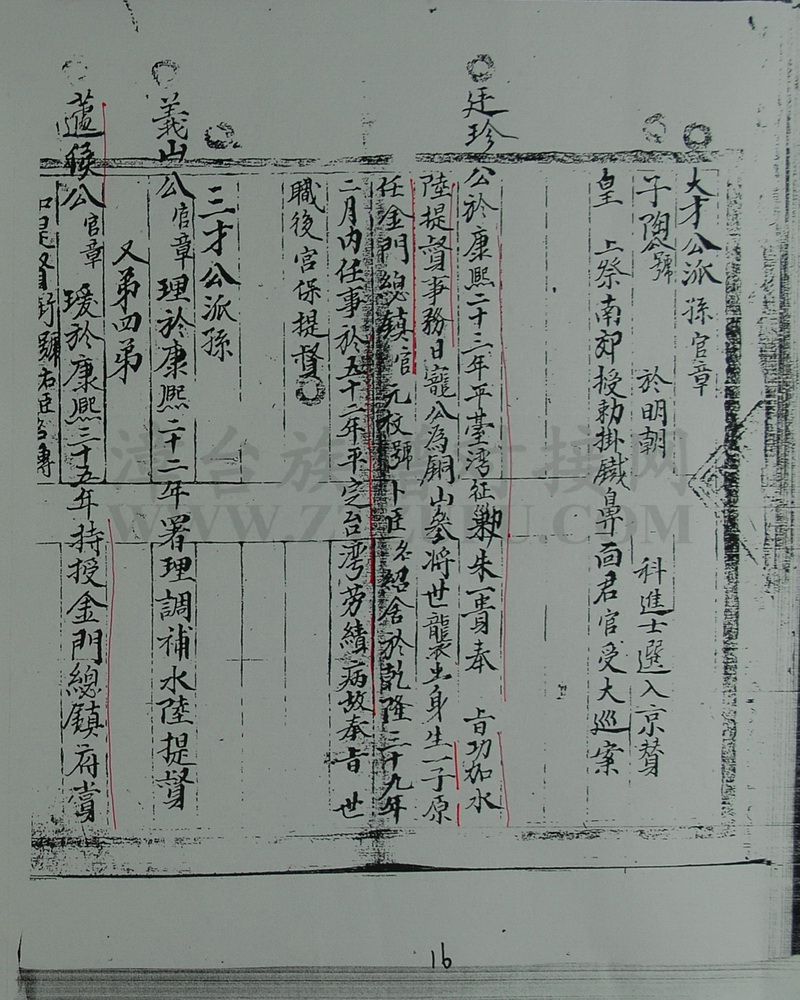 大才公派孫官章
子陶公號 於明朝 科進士選入京贊
皇 上祭南郊授勅掛鐵鼻面君官受大巡案
廷珍公於康熙二十二年平臺湾征勦朱一貴奉 旨功加水
陸提督事務日寵公為銅山參將世襲出身生一子原
任金門總鎮官元 號 臣名紹舍於乾隆三十九年
二月內任事於五十二年平定台湾劳績病故奉旨世
職後宫保提督
三才公派孫
義山公官章理於康熙二十二年署理調補水陸提督
又第四弟
蘧條公官章瑗於康熙三十五年持授金門總鎮府當
提督 號右臣名傳
漳台族譜對接网
16